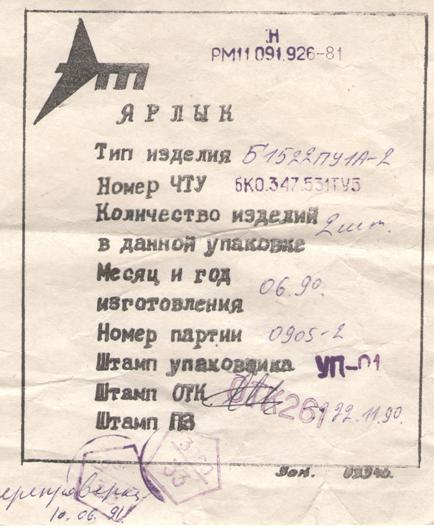 Н
РМ11 091.926-81
ЯРЛЫК
Тип изделия Б1522ПУ1А-2
Номер ЧТУ бК0.347.531ТУ5
Количество изделий 2шт.
в данной упаковке
Месяц и год
изготовления 06.90.
Номер партии 0905-2
Штамп упаковщика УП-01
Штамп ОТК
Штамп ПЗ 22.11.90.
Зак.